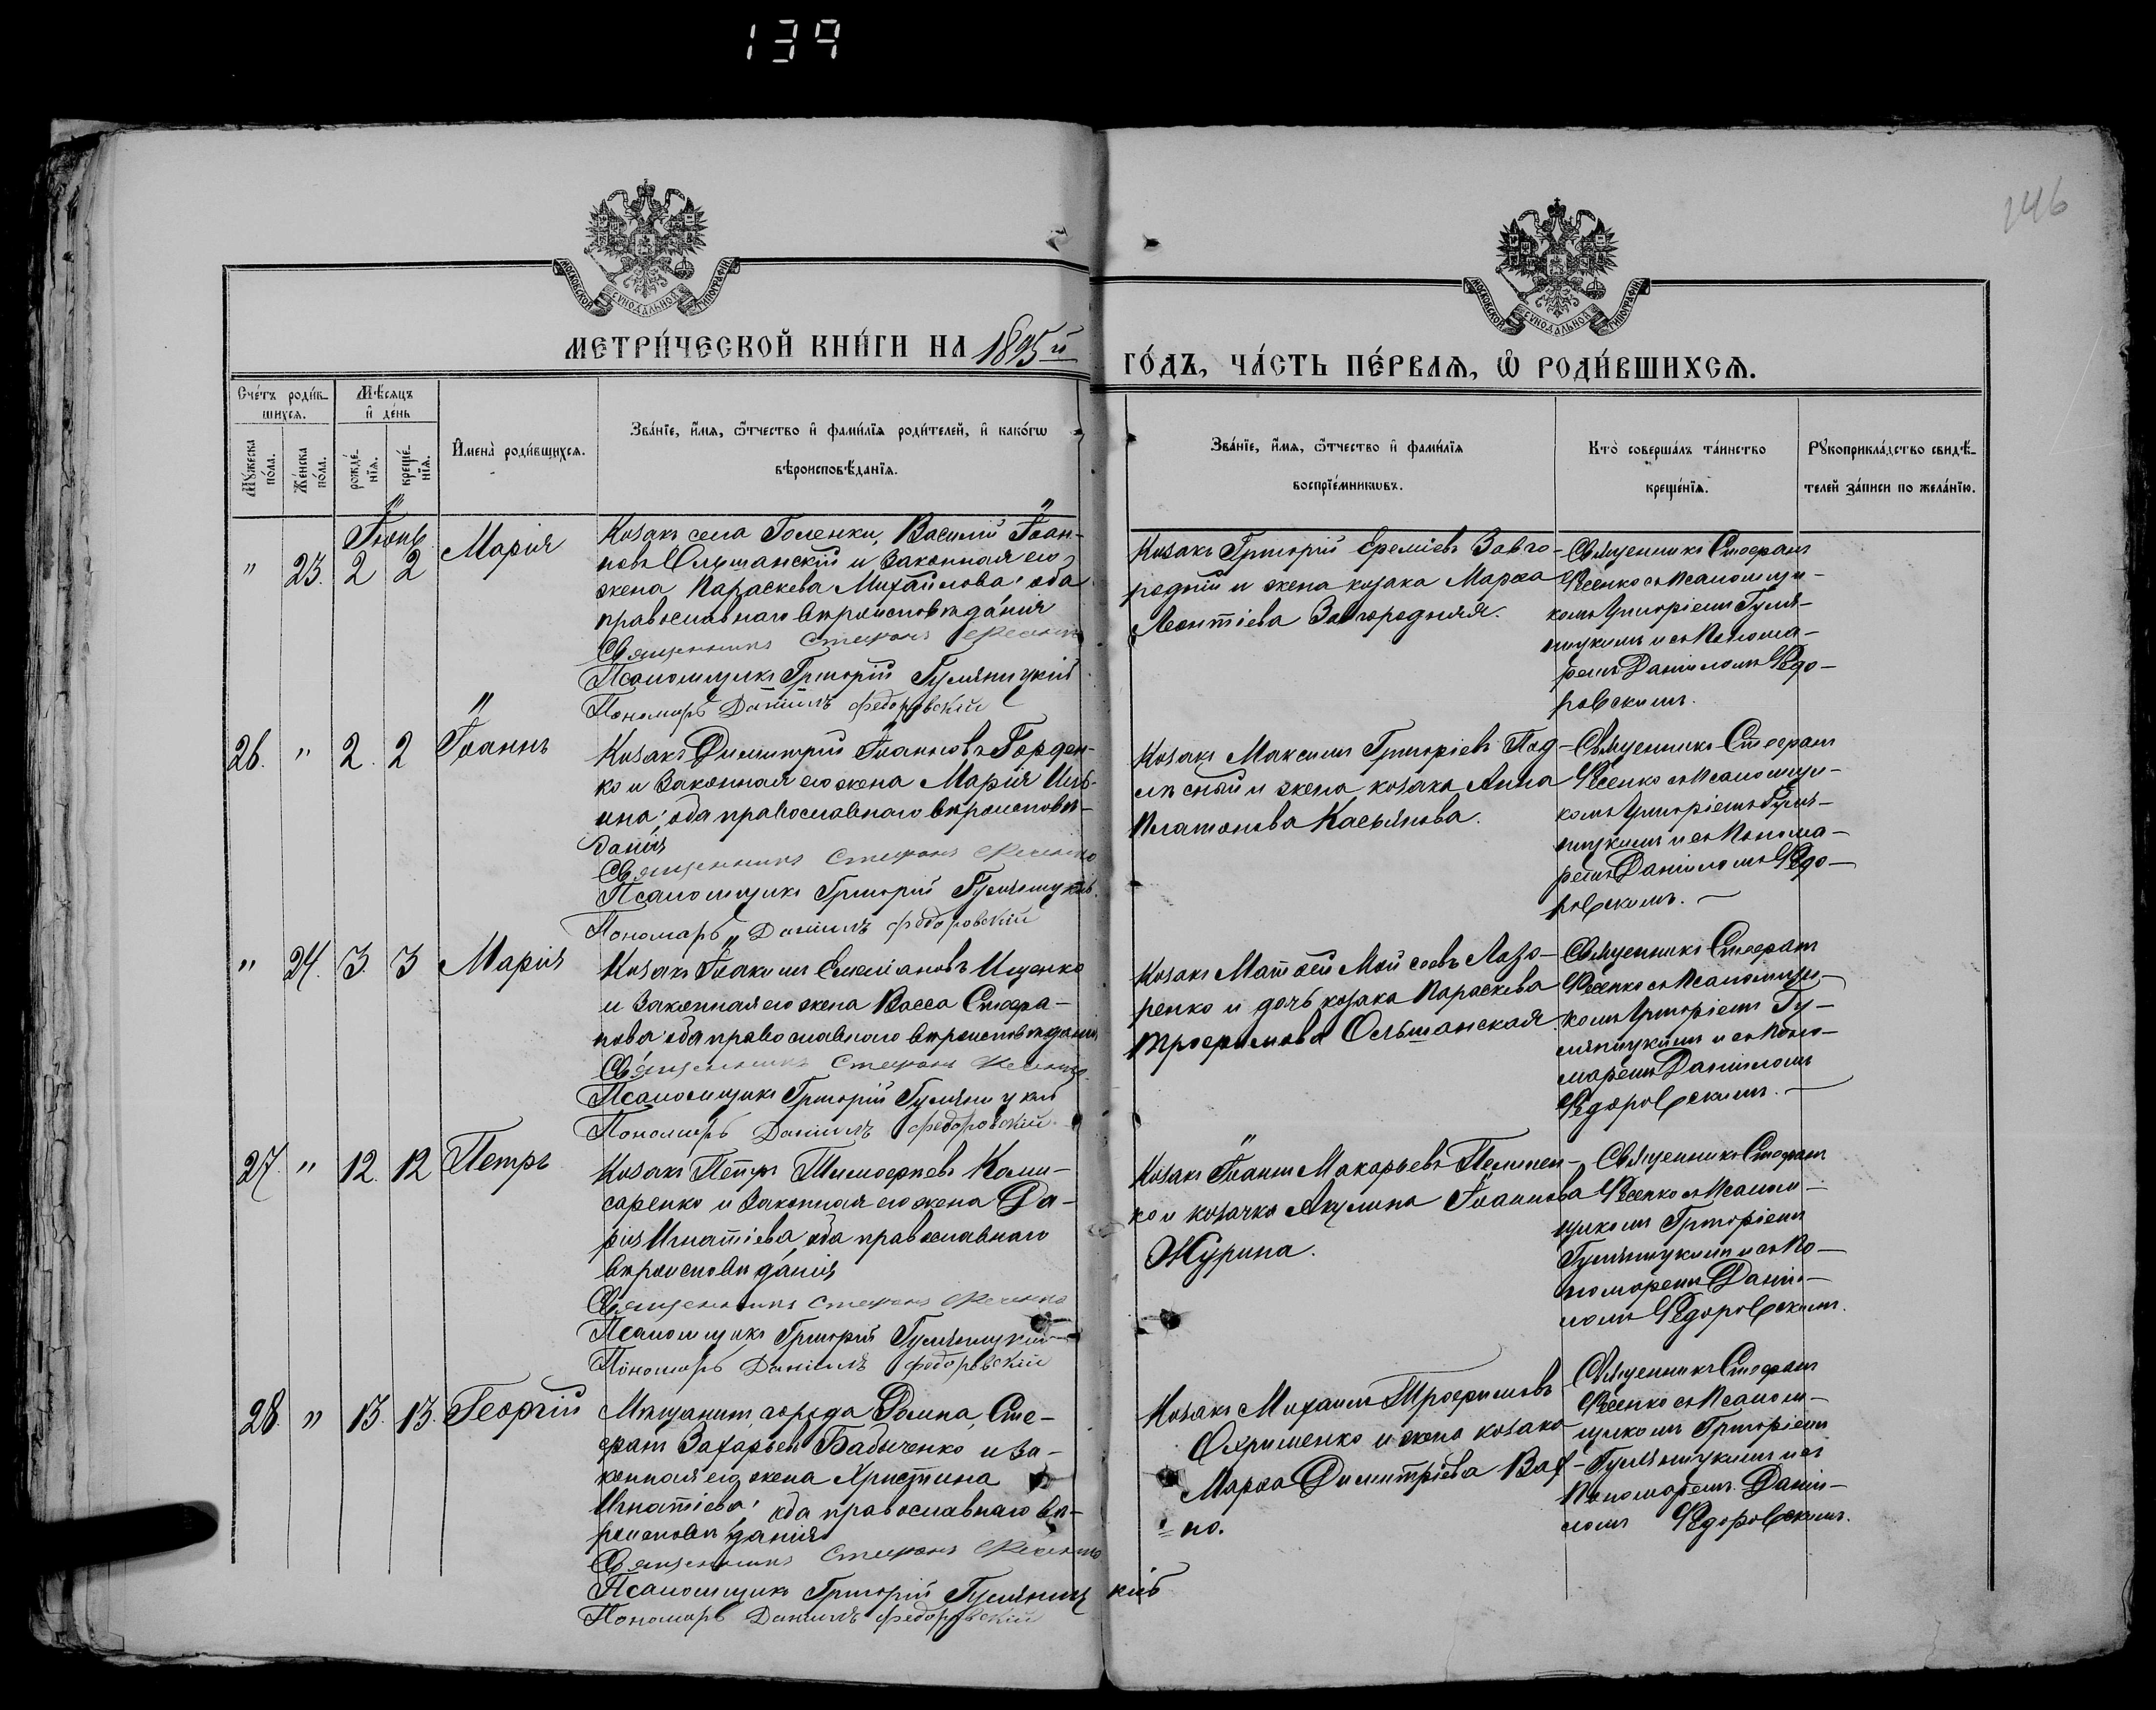 139
146
МОСКОВСКОЙ СѴНОДАЛЬНОЙ ТИПОГРАФІИ
МОСКОВСКОЙ СѴНОДАЛЬНОЙ ТИПОГРАФІИ
МЕТРИ́ЧЕСКОЙ КНИ́ГИ НА 1895 й
ГО́ДЪ, ЧА́СТЬ ПЕ́РВАѦ, Ѡ҆ РОДИ́ВШИХСѦ.
Сче́тъ роди́в-
шихсѧ.
Мѣ́сѧцъ
и҆ де́нь
Мꙋ́жеска
по́ла.
Же́нска
по́ла.
рожде́-
нїѧ.
креще́-
нїѧ.
И҆мена̀ роди́вшихсѧ.
Зва́нїе, и҆́мѧ, ѻ҆́тчество и҆ фами́лїѧ роди́телей, и҆ како́гѡ
вѣроисповѣ́данїѧ.
Зва́нїе, и҆́мѧ, ѻ҆́тчество и҆ фами́лїѧ
воспрїе́мникѡвъ.
Кто̀ соверша́лъ та́инство
креще́нїѧ.
Рꙋкоприкла́дство свидѣ́-
телей за́писи по жела́нїю.
Іюнь
" 23. 2 2 Марія
Козакъ села Голенки, Василій Іоан-
новъ Ольшанскій и законная его
жена Параскева Михайлова; оба
православнаго вѣроисповѣданія
Священникъ Стефанъ Фесенко
Псаломщикъ Григорій Гуляницкій
Пономарь Даніилъ Федоровскій
Козакъ Григорій Еремѣевъ Завго-
родній и жена козака Марѳа
Леонтіева Завгородняя.
Священникъ Стефанъ
Фесенко съ Псаломщи-
комъ Григоріемъ Гуля-
ницкимъ и съ Понома-
ремъ Даніиломъ Ѳедо-
ровскимъ.
26. " 2. 2 Іоаннъ
Козакъ Димитрій Іоанновъ Горден-
ко и законная его жена Марія Иль-
ина; оба православнаго вѣроисповѣ-
данія
Священникъ Стефанъ Фесенко
Псаломщикъ Григорій Гуляницкій
Пономарь Даніилъ Федоровскій
Козакъ Максимъ Григоріевъ Под-
лѣсный и жена козака Анна
Платонова Касьянова.
Священникъ Стефанъ
Фесенко съ Псаломщи-
комъ Григоріемъ Гуля-
ницкимъ и съ Понома-
ремъ Даніиломъ Ѳедо-
ровскимъ.
" 24. 3. 3 Марія
Козакъ Іоакимъ Емеліановъ Ищенко
и законная его жена Васса Стефа-
нова; оба православнаго вѣроисповѣданія
Священникъ Стефанъ Фесенко
Псаломщикъ Григорій Гуляницкій
Пономарь Даніилъ Федоровскій
Козакъ Матѳей Мойсеевъ Лазо-
ренко и дочь козака Параскева
Трофимова Ольшанская
Священникъ Стефанъ
Фесенко съ Псаломщи-
комъ Григоріемъ Гу-
ляницкимъ и съ Поно-
маремъ Даніиломъ
Ѳедоровскимъ.
27. " 12. 12 Петръ
Козакъ Петръ Тимоѳеевъ Коми-
саренко и законная его жена Да-
рія Игнатіева, оба православнаго
вѣроисповѣданія
Священникъ Стефанъ Фесенко
Псаломщикъ Григорій Гуляницкій
Пономарь Даніилъ Федоровскій
Козакъ Іоаннъ Макарьевъ
ко и козачка Акулина Іоаннова
Журина.
Священникъ Стефанъ
Фесенко съ Псалом-
щикомъ Григоріемъ
Гуляницкимъ и съ По-
номаремъ Даніи-
ломъ Ѳедоровскимъ.
28. " 13. 13. Георгій
Мѣщанинъ города Ромна, Сте-
фанъ Захарьевъ Бабиченко и за-
конная его жена Христина
Игнатіева; оба православнаго вѣ-
роисповѣданія
Священникъ Стефанъ Фесенко
Псаломщикъ Григорій Гуляницкій
Пономарь Даніилъ Федоровскій
Козакъ Михаилъ Трофимовъ
Охрименко и жена козака
Марѳа Димитріева Вах-
но.
Священникъ Стефанъ
Фесенко съ Псалом-
щикомъ Григоріемъ
Гуляницкимъ и съ
Пономаремъ Даніи-
ломъ Ѳедоровскимъ.